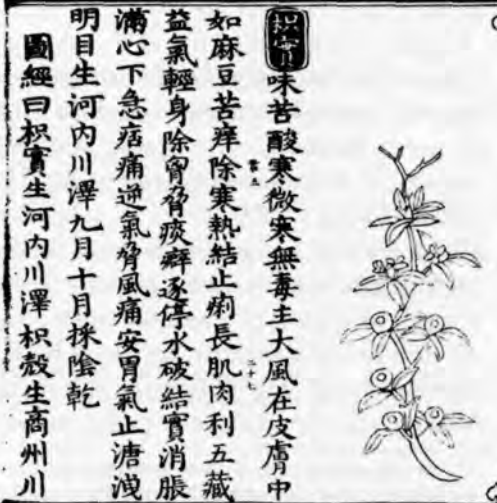 枳實味苦酸寒微寒無毒主大風在皮膚中
如麻豆苦痒除寒熱結止痢長肌肉利五藏
益氣輕身除胷脅痰癖逐停水破結實消脹
滿心下急痞痛逆氣脅風痛安胃氣止溏洩
明目生河內川澤九月十月採陰乾
圖經曰枳實生河內川澤枳殼生商州川